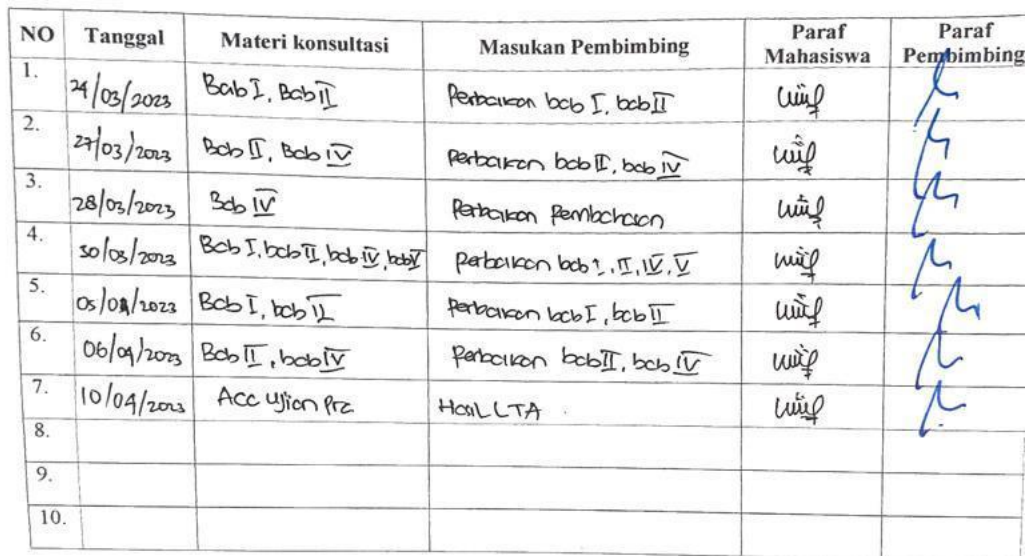 NO Tanggal Materi konsultasi Masukan Pembimbing Paraf Mahasiswa Paraf Pembimbing
1. 24/03/2023 Bab I, Bab II Perbaikan bab I, bab II
2. 27/03/2023 Bab II, Bab IV Perbaikan bab II, bab IV
3. 28/03/2023 Bab IV Perbaikan Pembahasan
4. 30/03/2023 Bab I, bab II, bab IV, bab V Perbaikan bab I, II, IV, V
5. 05/04/2023 Bab I, bab II Perbaikan bab I, bab II
6. 06/04/2023 Bab II, bab IV Perbaikan bab II, bab IV
7. 10/04/2023 Acc Ujian Pra Hasil LTA
8.
9.
10.